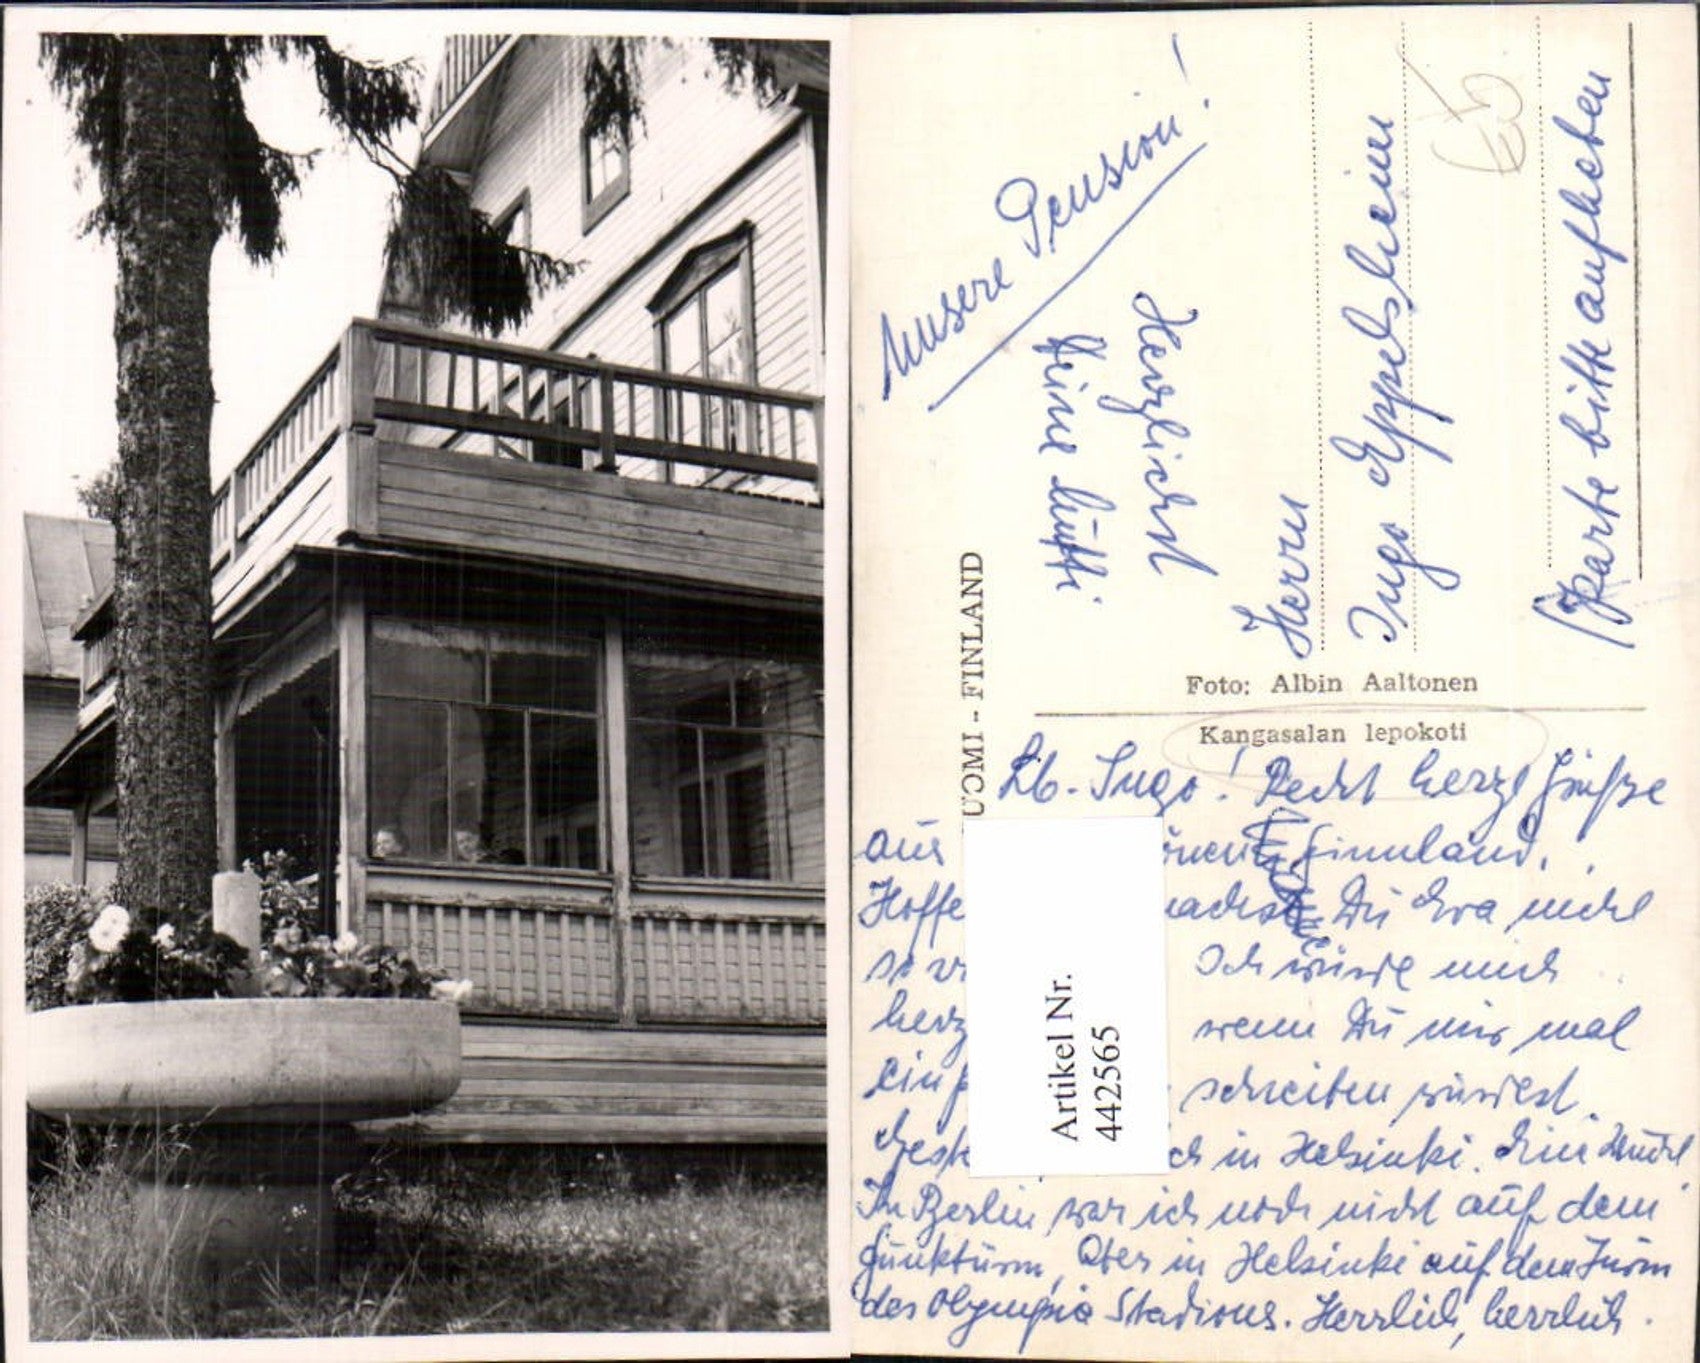 Unsere Pension!
Herzlichst
Deine Mutti
Herrn
Ingo Eppelsheim
Karte bitte aufheben
SUOMI - FINLAND
Foto: Albin Aaltonen
Kangasalan lepokoti
Lb. Ingo! Recht herzl Grüsse
aus Finnland.
Hoffe Du Eva nicht
Ich würde mich
herz wenn Du mir mal
schreiben würdest.
ich in Helsinki. Eine
In Berlin war ich noch nicht auf dem
Funkturm, Aber in Helsinki auf dem Turm
des Olympia Stadions. Herrlich, herrlich.
Artikel Nr.
442565